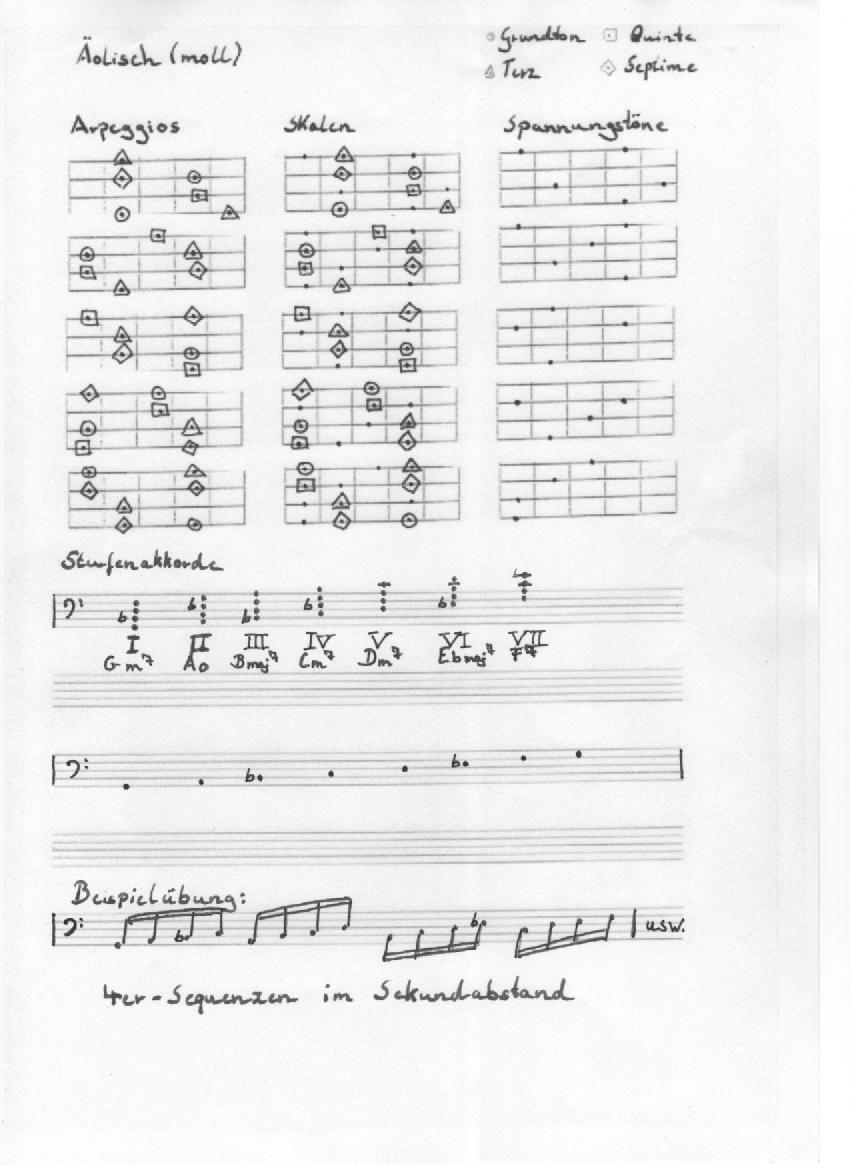 Äolisch (moll)
Grundton Quinte
Terz Septime
Arpeggios Skalen Spannungstöne
Stufenakkorde
I II III IV V VI VII
Gm7 Ao Bmaj7 Cm7 Dm7 Ebmaj7 F7
Beispielübung:
usw.
4er-Sequenzen im Sekundabstand